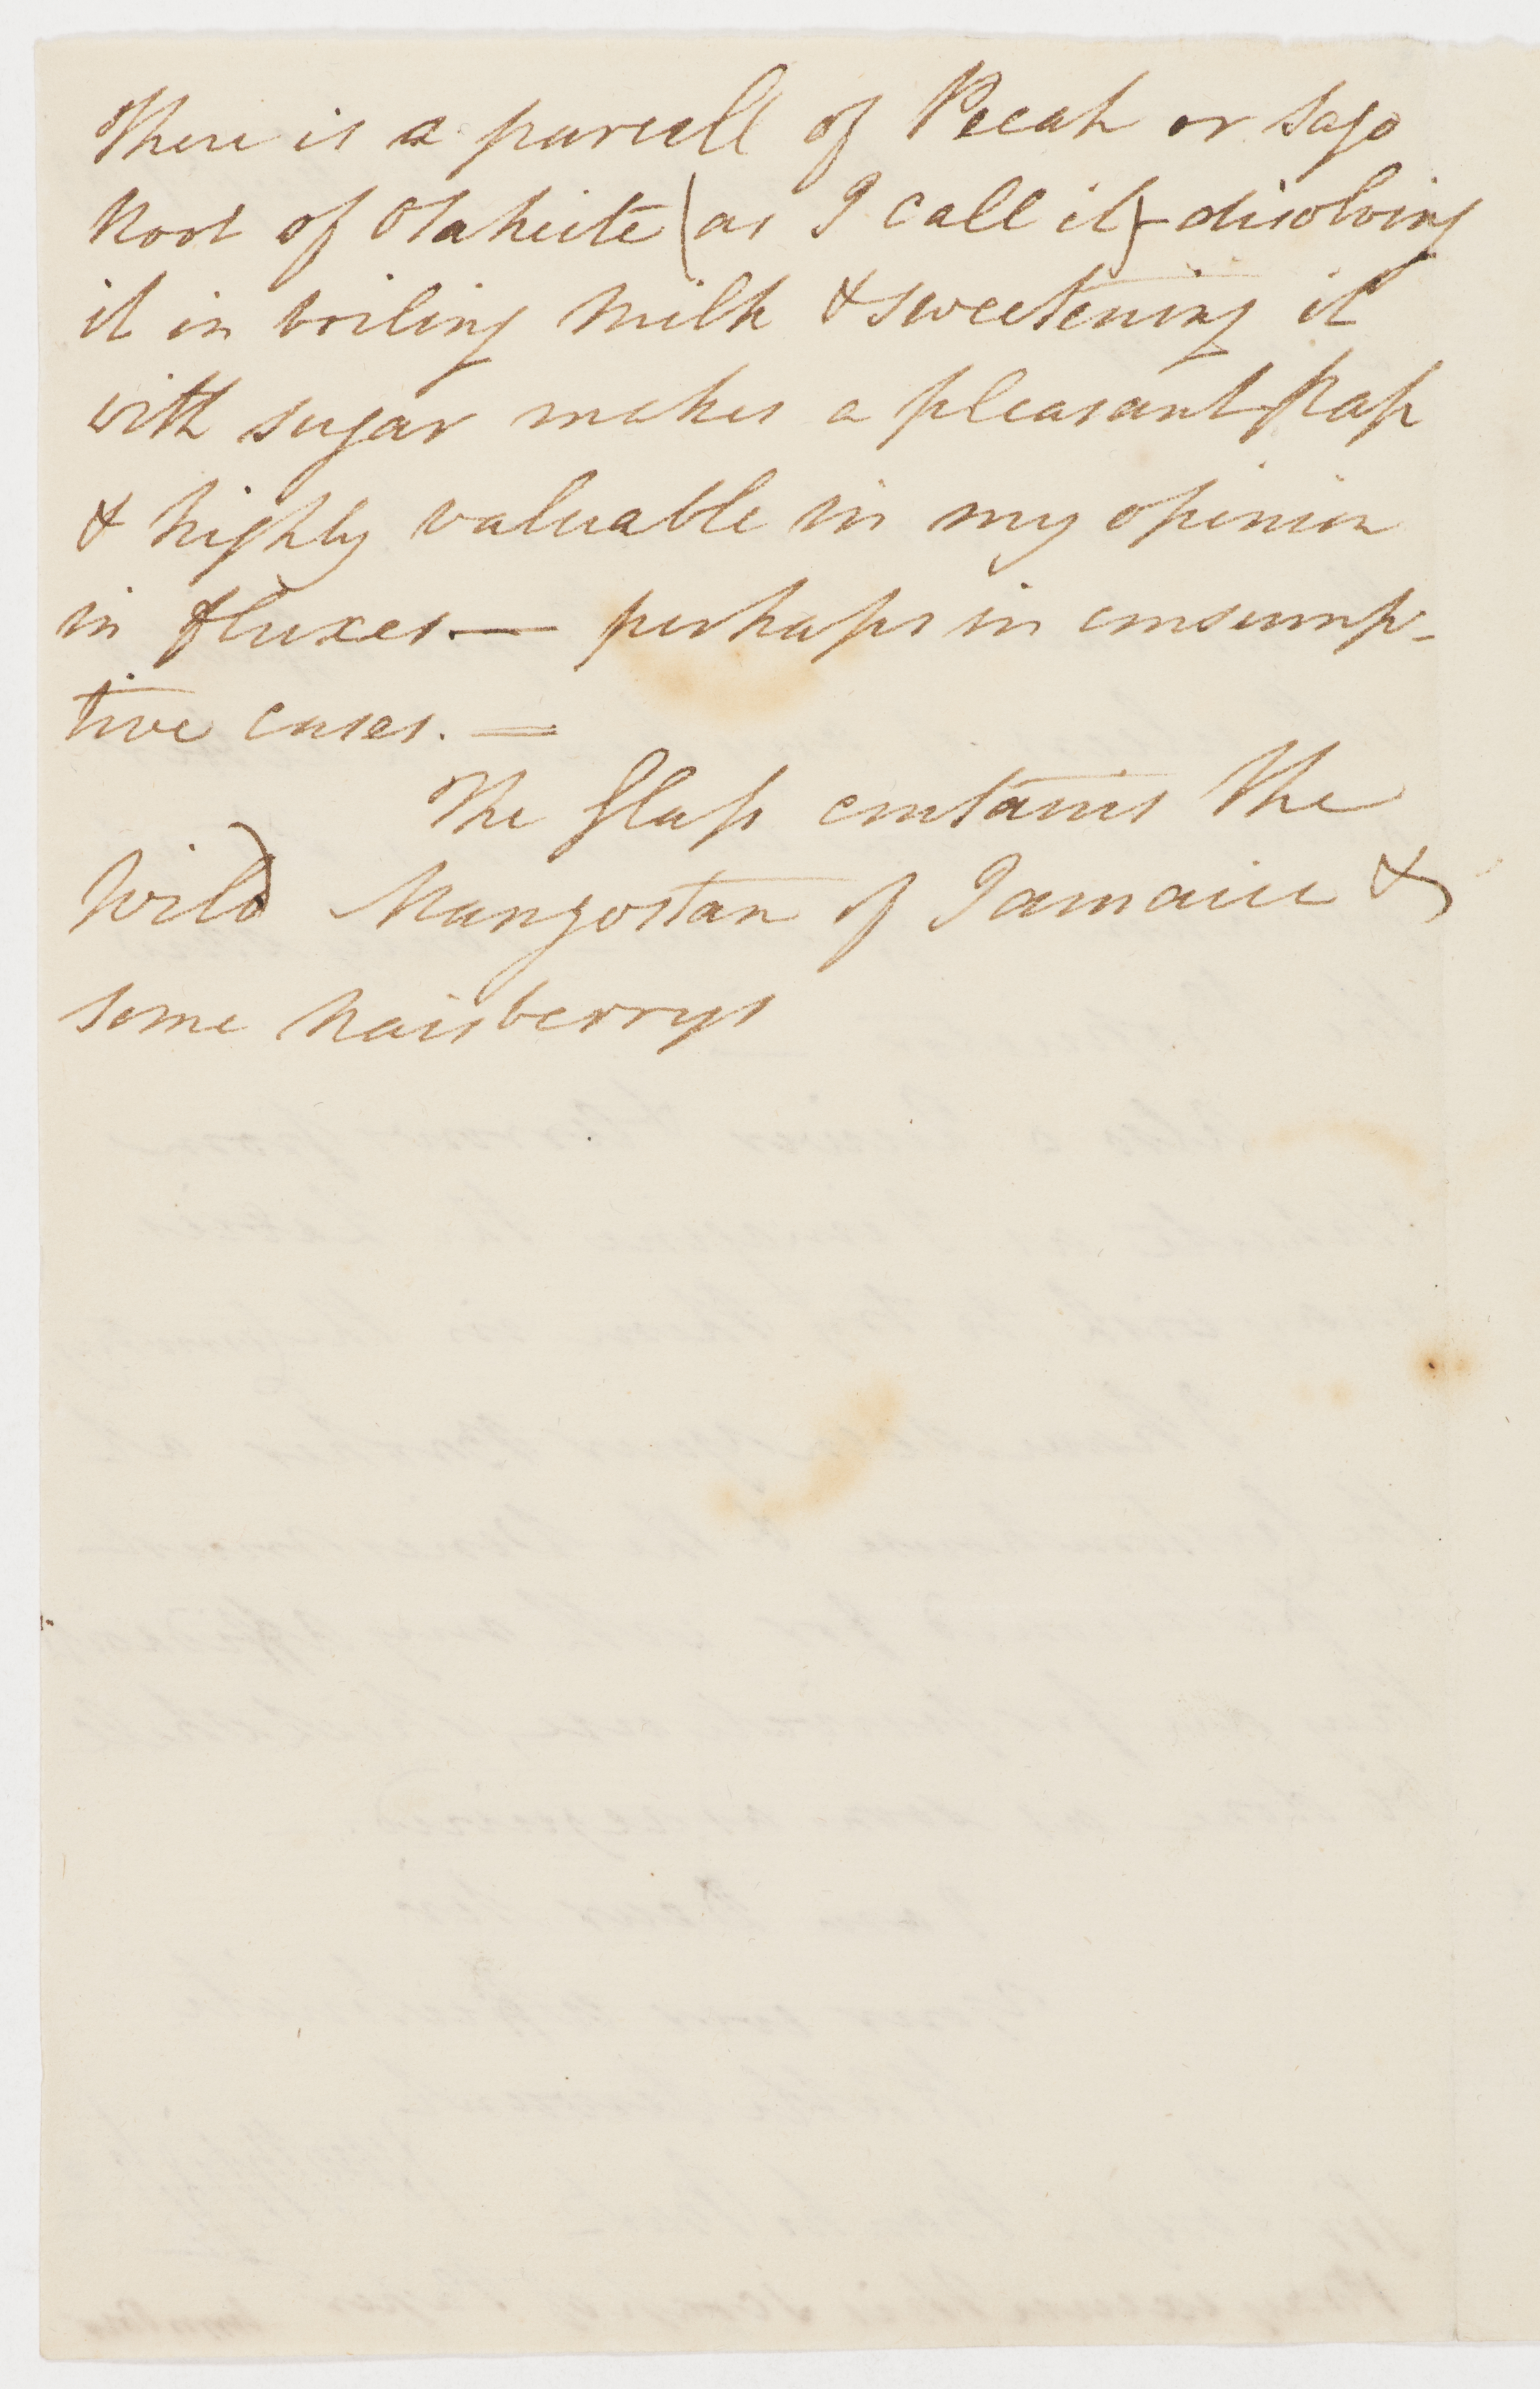 There is a parcell of Peeah or Sago
Root of Otaheite (as I call it) - disolving
it in boiling Milk & sweetening it
with sugar makes a pleasant Pap
& highly valuable in my opinion
in fluxes. — perhaps in consump-
tive cases. =
The Glass contains the
Wild Mangostan of Jamaica &
some naisberrys